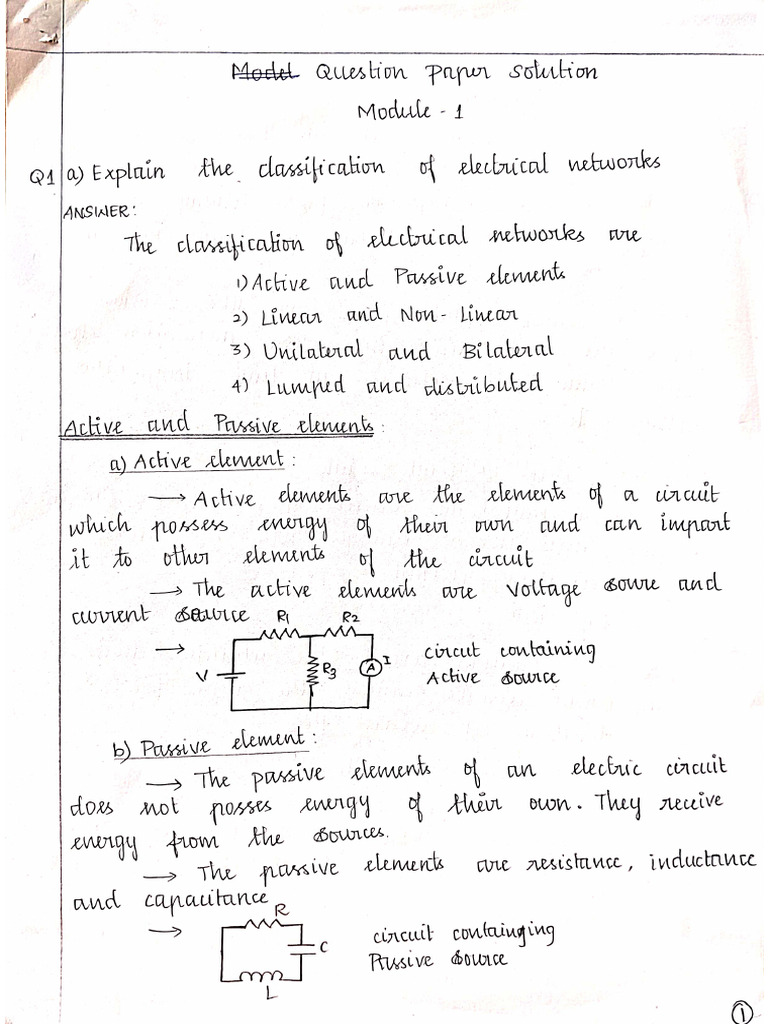 Model Question paper solution
Module - 1
Q1 a) Explain the classification of electrical networks
ANSWER:
The classification of electrical networks are
1) Active and Passive elements
2) Linear and Non-Linear
3) Unilateral and Bilateral
4) Lumped and distributed
Active and Passive elements:
a) Active element:
→ Active elements are the elements of a circuit
which possess energy of their own and can impart
it to other elements of the circuit
→ The active elements are voltage soure and
current source
R1 R2
→ V R3 A I
circut containing
Active source
b) Passive element:
→ The passive elements of an electric circuit
does not posses energy of their own. They receive
energy from the sources.
→ The passive elements are resistance, inductance
and capacitance
R
→ C
L
circuit containging
Passive source
1